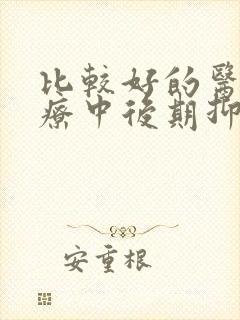 比較好的醫
療中後期抑
安重根